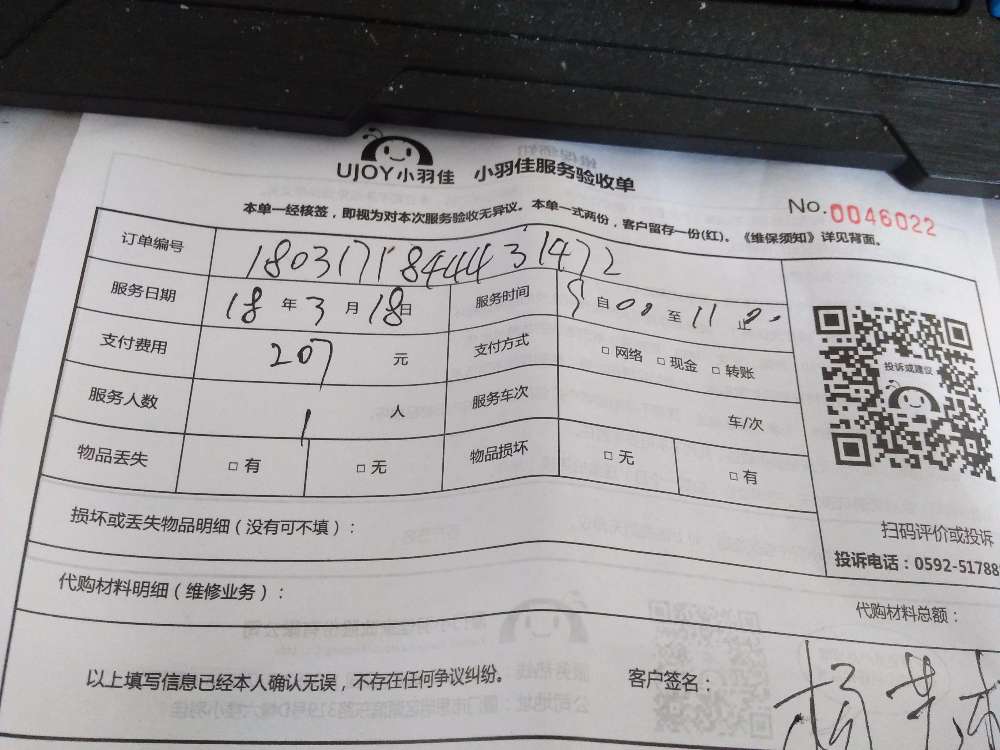 UJOY小羽佳 小羽佳服务验收单
No.0046022
本单一经核签，即视为对本次服务验收无异议。本单一式两份，客户留存一份(红)。《维保须知》详见背面。
订单编号 18031718444431472
服务日期 18 年 3 月 18 日 服务时间 9 自 00 至 11 止 00
支付费用 207 元 支付方式 □ 网络 □ 现金 □ 转账
服务人数 1 人 服务车次 车/次
物品丢失 □ 有 □ 无 物品损坏 □ 无 □ 有
投诉或建议
扫码评价或投诉
投诉电话：0592-51788
损坏或丢失物品明细（没有可不填）：
代购材料明细（维修业务）：
代购材料总额：
以上填写信息已经本人确认无误，不存在任何争议纠纷。 客户签名：